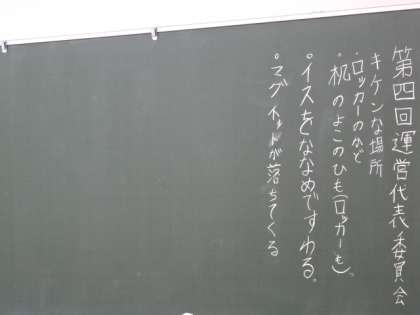 第四回運営代表委員会
キケンな場所
・ロッカーのかど
・机のよこのひも(ロッカーも)。
・イスをななめですわる。
・マグネットが落ちてくる